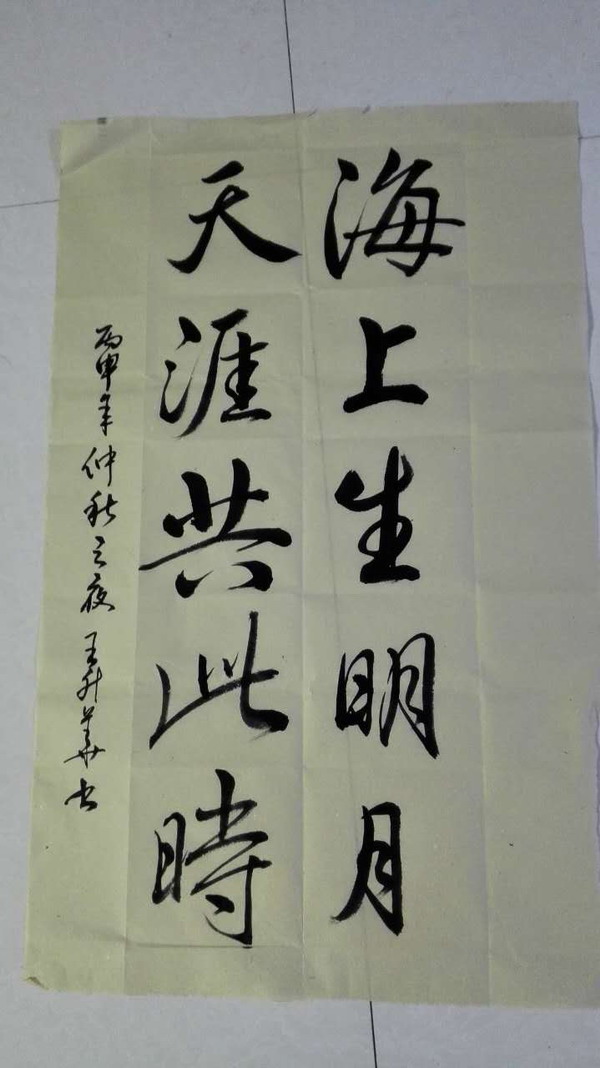 海上生明月
天涯共此時
丙申年仲秋之夜王升华书